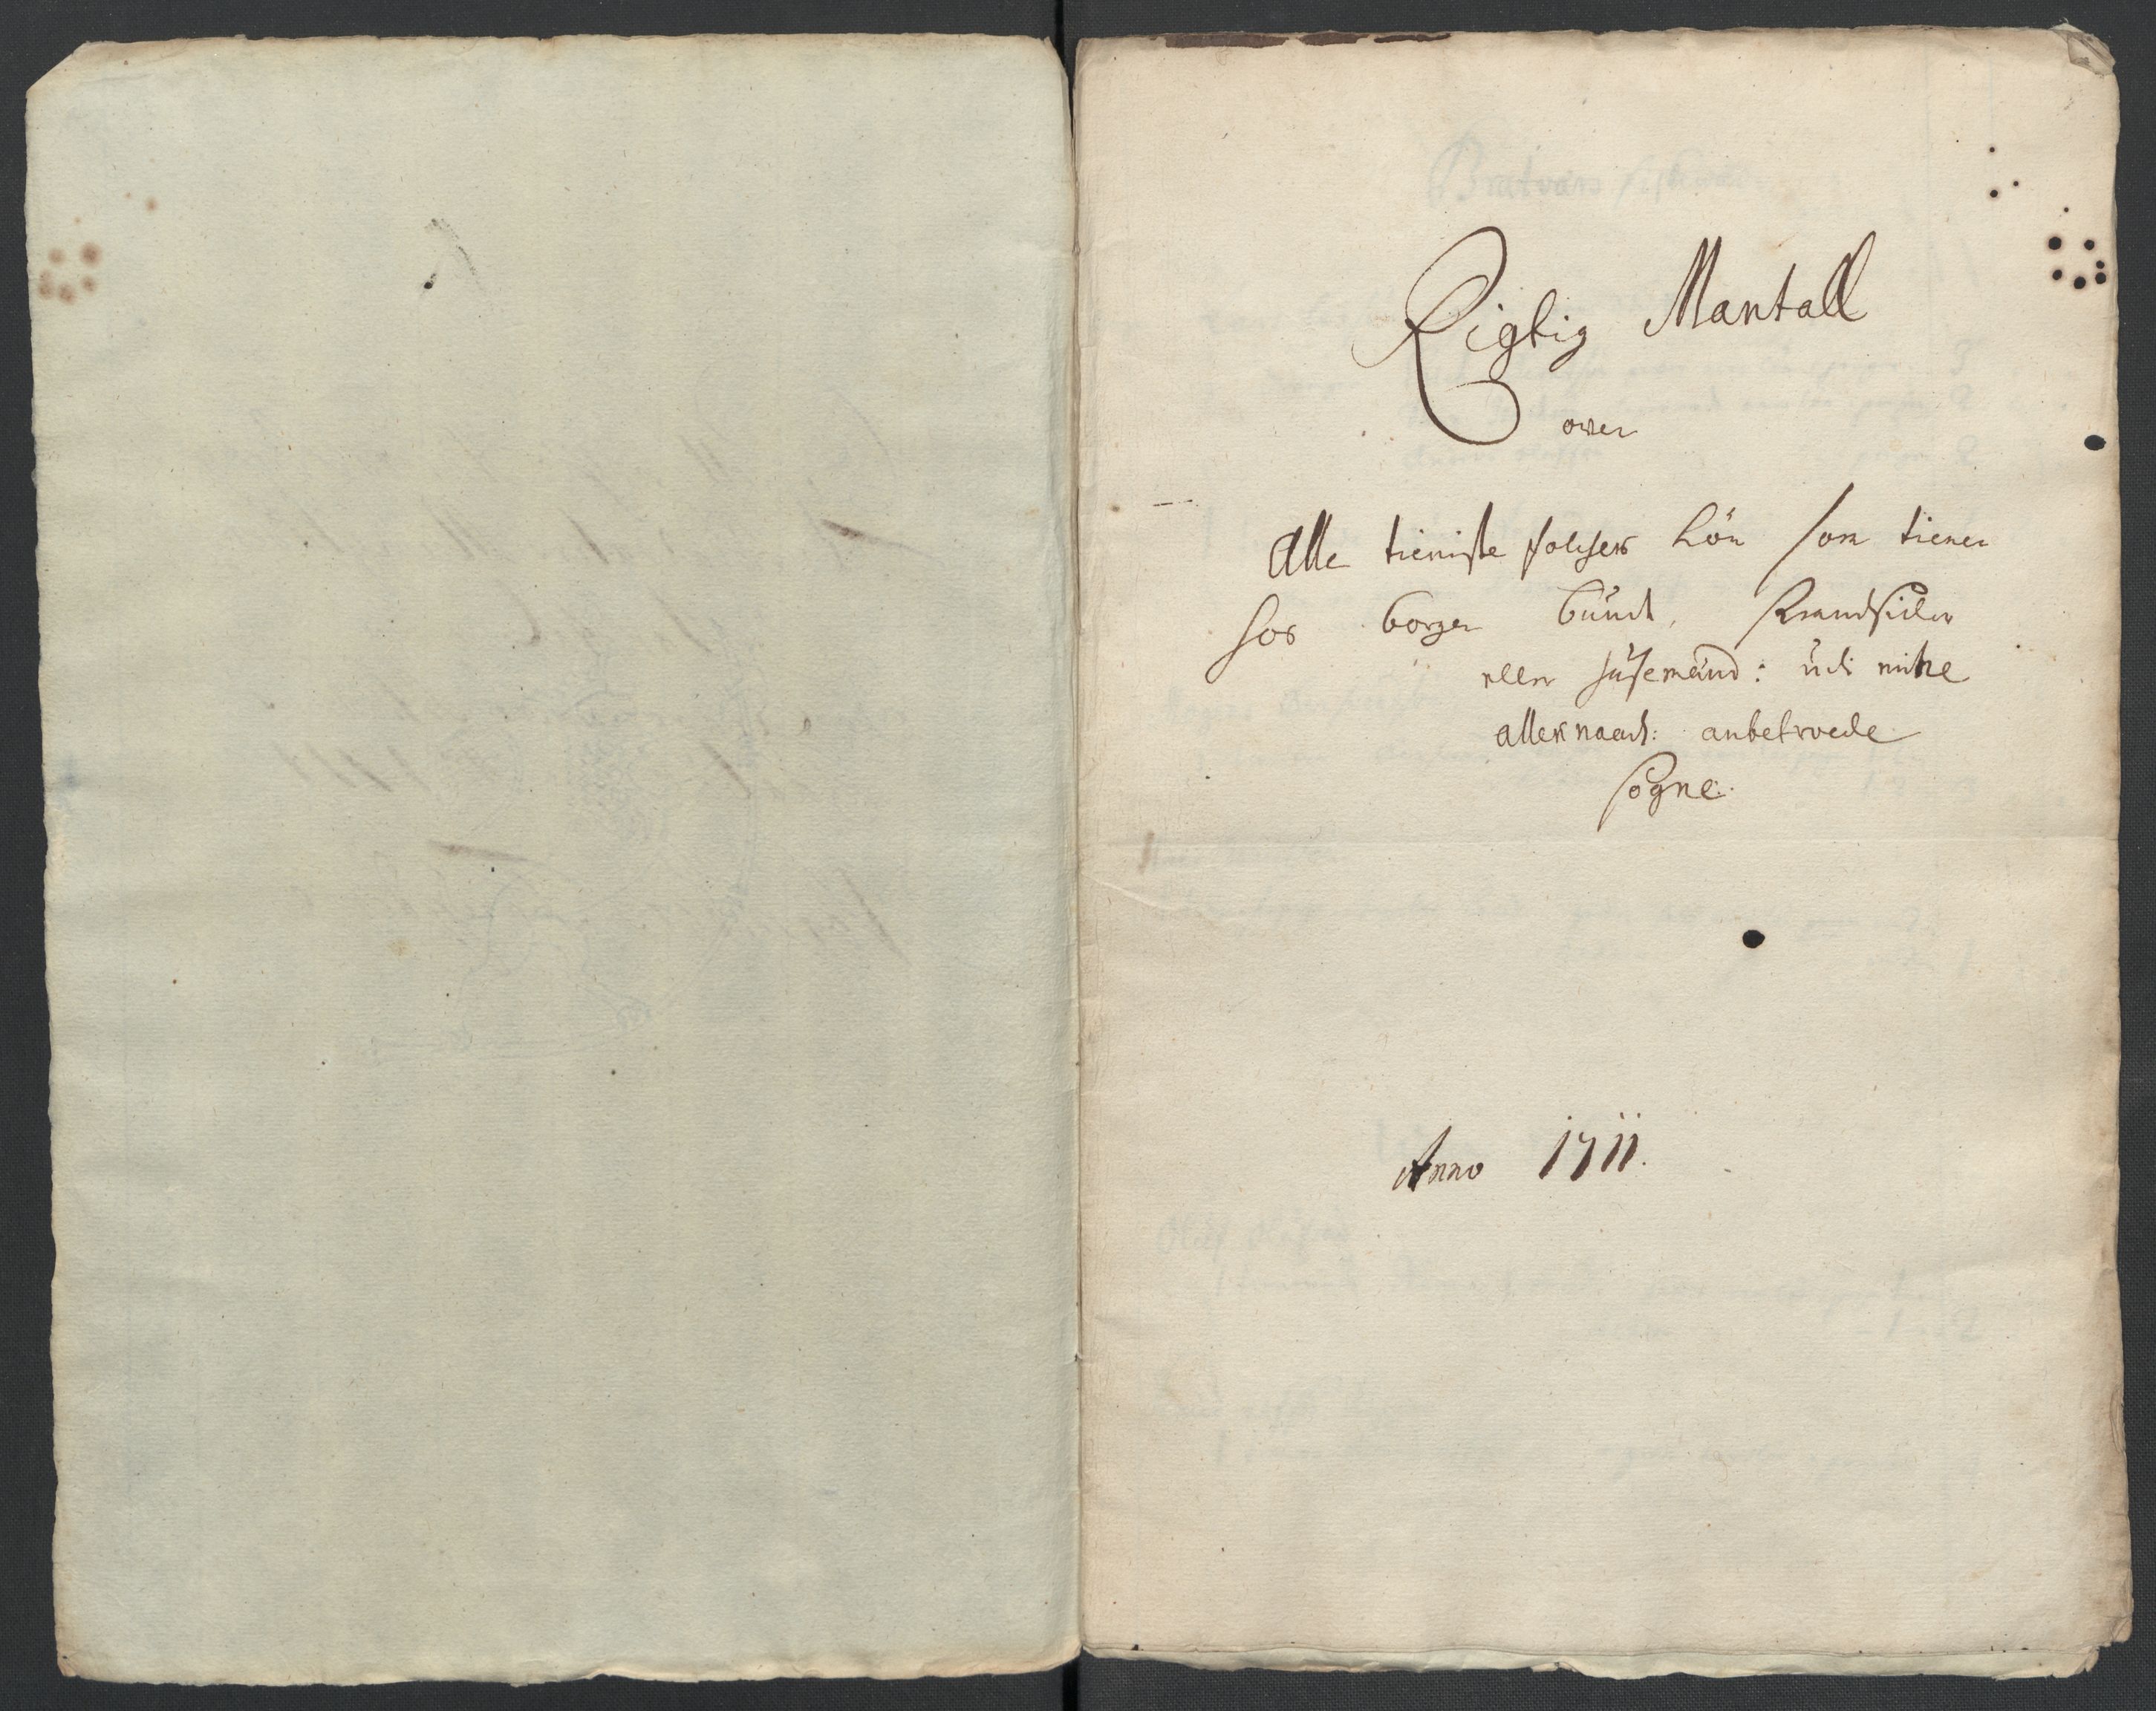 Rigtig Mantall
over
Alle tieniste folches Lön som tiener
hos borger bunde, Strandsider
eller huusemænd: udi mine
allernaad: anbetroede
sogne.
Anno 1711.